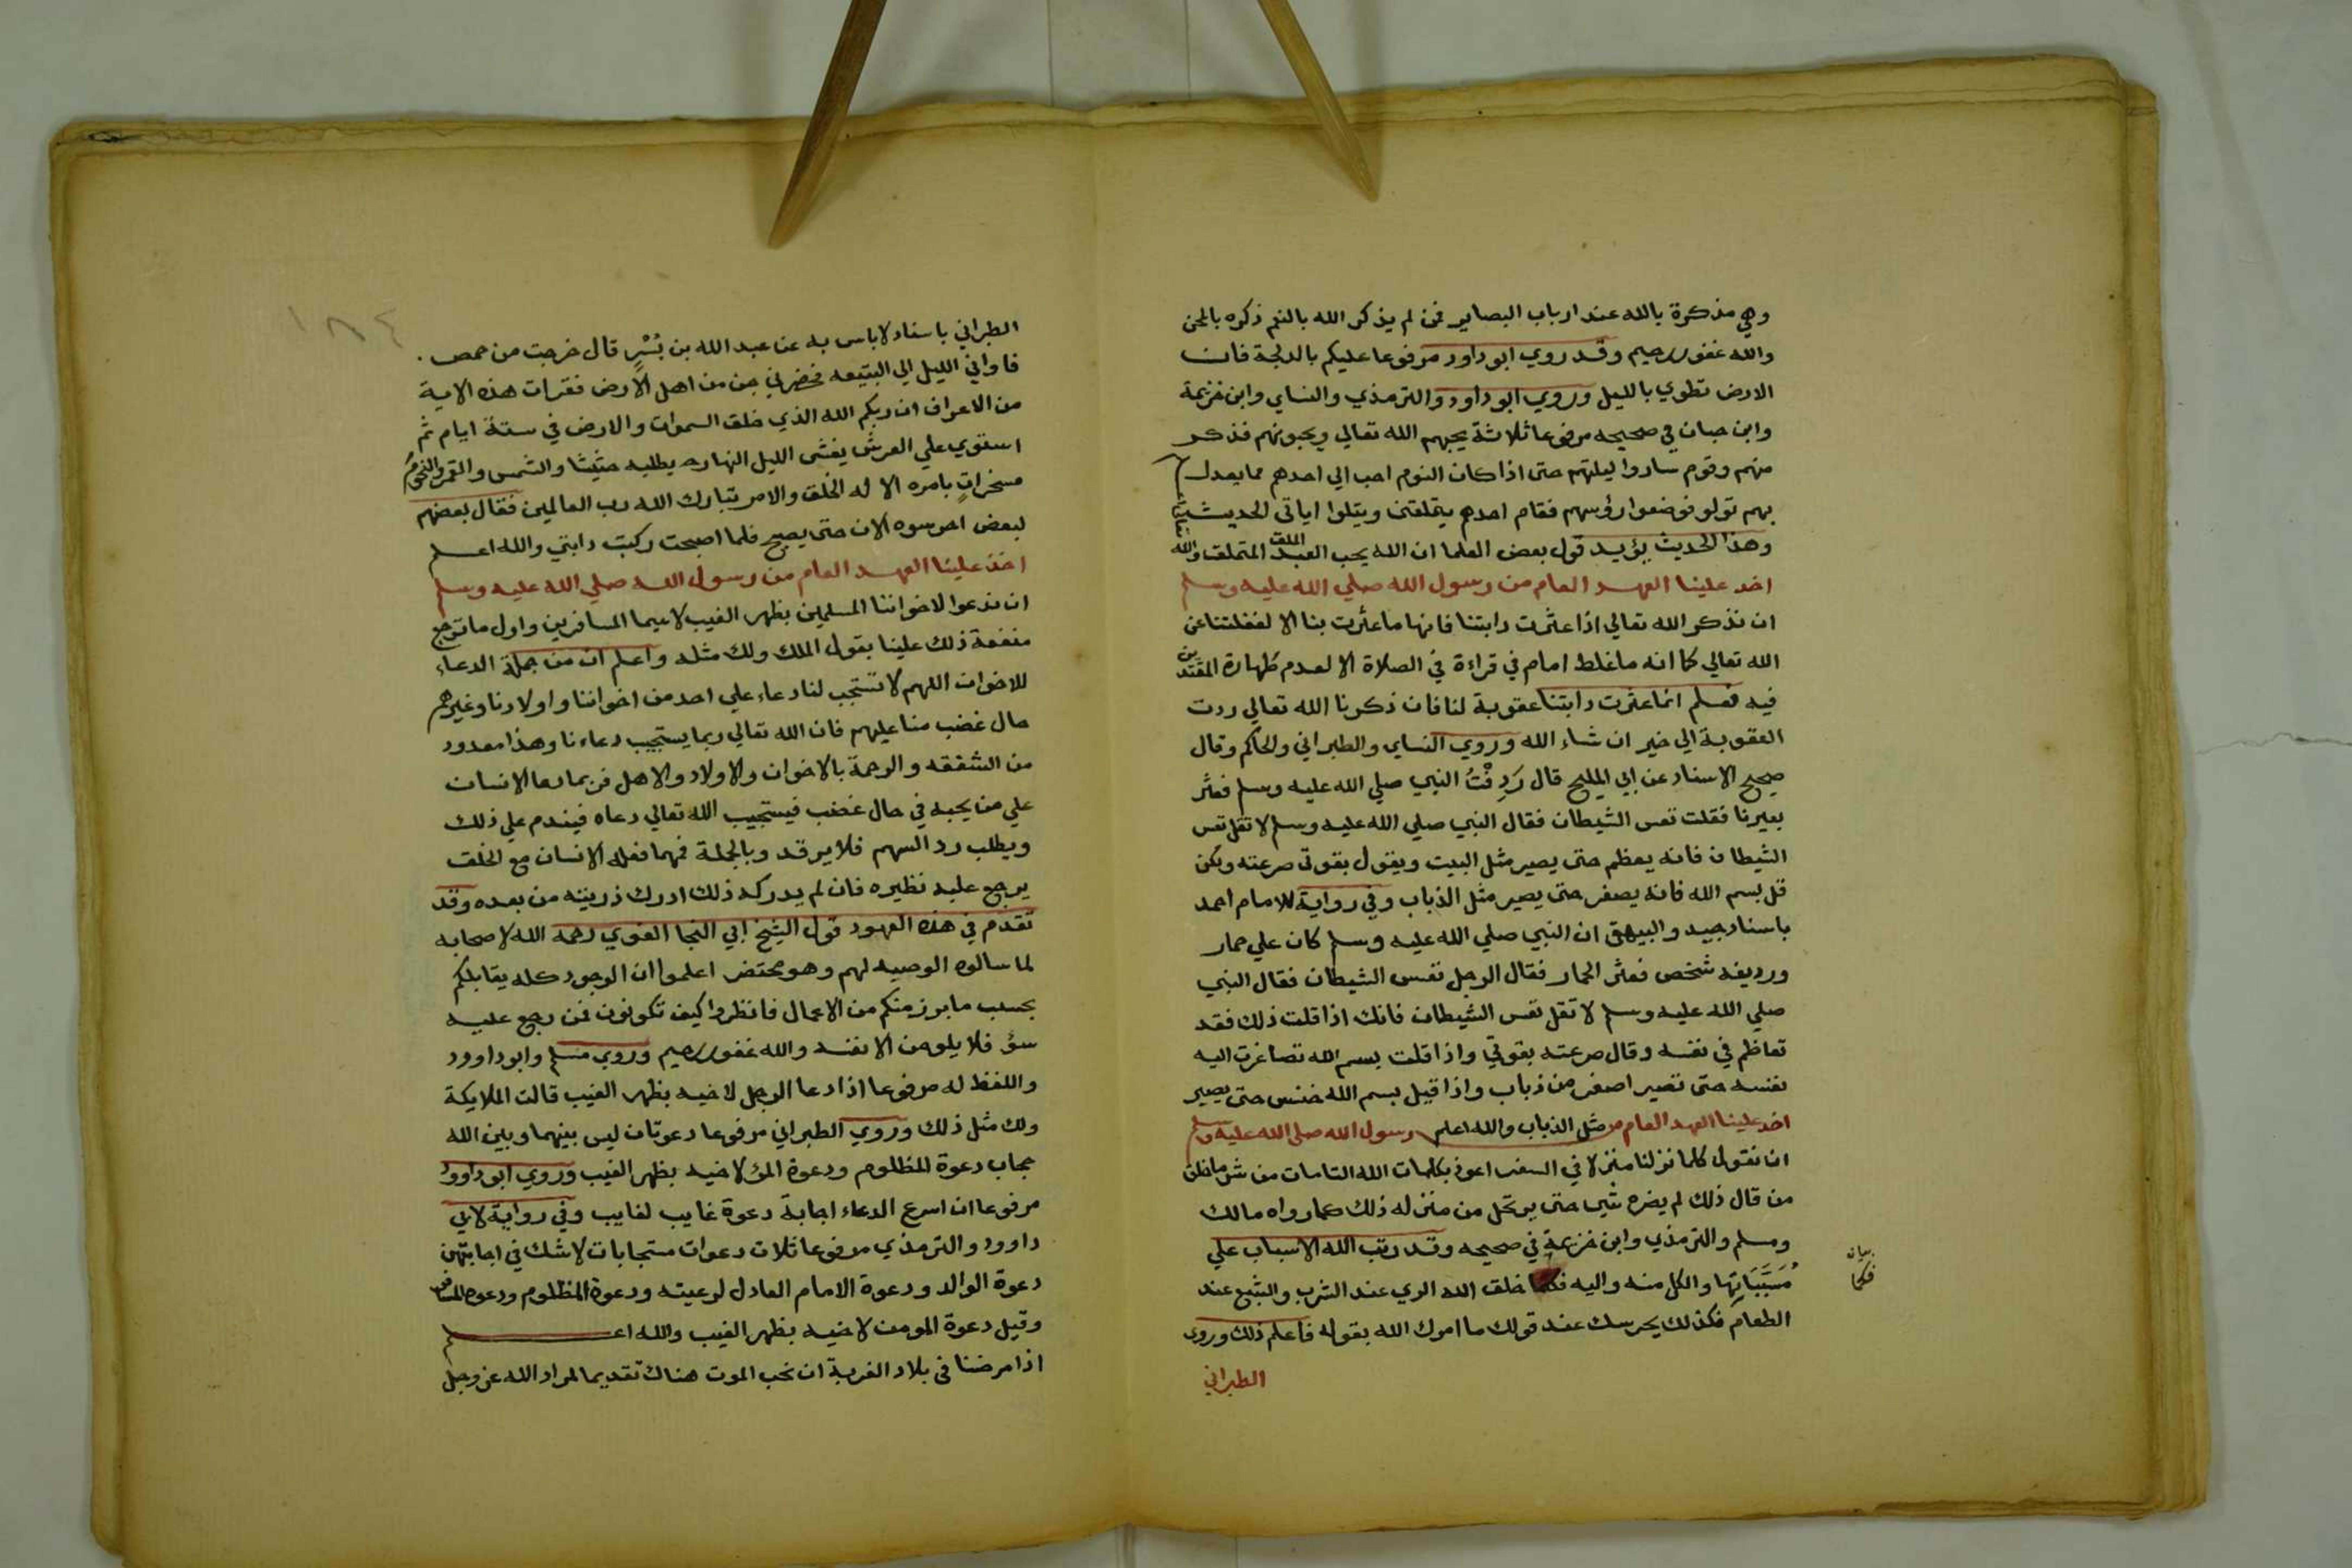 وهي مذكرة بالله عند ارباب البصاير فمن لم يذكر الله بالنعم ذكره بالمحن
والله غفور رحيم وقد روي ابو داود مرفوعا عليكم بالدلجة فان
الارض تطوي بالليل وروي ابو داود والترمذي والنساي وابن خزيمة
وابن حبان في صحيحه مرفوعا ثلاثة يحبهم الله تعالي ويحبونهم فذكر
منهم وقوم ساروا ليلتهم حتى اذا كان النوم احب الي احدهم مما يعدل
بهم نزلوا فوضعوا رؤسهم فقام احدهم يتملقني ويتلوا اياتي الحديث
وهذا الحديث يؤيد قول بعض العلما ان الله يحب العبد الملق المتملق والله
اخذ علينا العهد العام من رسول الله صلي الله عليه وسلم
ان نذكر الله تعالي اذا عثرت دابتنا فانها ما عثرت بنا الا لغفلتنا عن
الله تعالي كما انه ما غلط امام في قراءة في الصلاة الا لعدم طهارة المقتدين
فيه فعلم انما عثرت دابتنا عقوبة لنا فان ذكرنا الله تعالي ردت
العقوبة الي خير ان شاء الله وروي النساي والطبراني والحاكم وقال
صحيح الاسناد عن ابي المليح قال رَدِفْتُ النبي صلي الله عليه وسلم فعثر
بعيرنا فقلت تعس الشيطان فقال النبي صلي الله عليه وسلم لا تقل تعس
الشيطان فانه يعظم حتى يصير مثل البيت ويقول بقوتي صرعته ولكن
قل بسم الله فانه يصغر حتى يصير مثل الذباب وفي رواية للامام احمد
باسناد جيد والبيهقي ان النبي صلي الله عليه وسلم كان علي حمار
ورديفه شخص فعثر الحمار فقال الرجل تعس الشيطان فقال النبي
صلي الله عليه وسلم لا تقل تعس الشيطان فانك اذا قلت ذلك فقد
تعاظم في نفسه وقال صرعته بقوتي واذا قلت بسم الله تصاغرت اليه
نفسه حتى تصير اصغر من ذباب واذا قيل بسم الله خنس حتى يصير
اخذ علينا العهد العام من مثل الذباب والله اعلم رسول الله صلى الله عليه وسلم
ان نقول كلما نزلنا منزلا في السفر اعوذ بكلمات الله التامات من شر ما خلق
من قال ذلك لم يضره شي حتى يرتحل من منزله ذلك كما رواه مالك
ومسلم والترمذي وابن خزيمة في صحيحه وقد رتب الله الاسباب علي
مُسَبَّبَاتِها والكل منه واليه فكما خلق الله الري عند الشرب والشبع عند
بيان
فكما
الطعام فكذلك يحرسك عند قولك ما امرك الله بقوله فاعلم ذلك وروى
الطبراني
١٨٤
الطبراني باسناد لا باس به عن عبد الله بن بُسْرٍ قال خرجت من حمص
فاواني الليل الي البتيعه فحضرني جن من اهل الارض فقرات هذه الاية
من الاعراف ان ربكم الله الذي خلق السموات والارض في ستة ايام ثم
استوي علي العرش يغشى الليل النهار يطلبه حثيثا والشمس والقمر والنجوم
مسخراتٍ بامره الا له الخلق والامر تبارك الله رب العالمين فقال بعضهم
لبعض احرسوه الان حتى يصبح فلما اصبحت ركبت دابتي والله اعلم
اخذ علينا العهد العام من رسول الله صلي الله عليه وسلم
ان ندعوا لاخواننا المسلمين بظهر الغيب لا سيما المسافرين واول ما ترجع
منفعة ذلك علينا بقول الملك ولك مثله واعلم ان من جملة الدعاء
للاخوان اللهم لا تستجب لنا دعاء علي احد من اخواننا واولادنا وغيرهم
حال غضب منا عليهم فان الله تعالي ربما يستجيب دعاءنا وهذا معدود
من الشفقه والرحمة بالاخوان والاولاد والاهل فربما دعا الانسان
علي من يحبه في حال غضب فيستجيب الله تعالي دعاه فيندم علي ذلك
ويطلب رد السهم فلا يرقد وبالجملة فمهما فعله الانسان مع الخلق
يرجع عليه نظيره فان لم يدركه ذلك ادرك ذريته من بعده وقد
تقدم في هذه العهود قول الشيخ ابي النجا الفوي رحمه الله لاصحابه
لما سالوه الوصيه لهم وهو محتضر اعلموا ان الوجود كله يقابلكم
بحسب ما برز منكم من الاعمال فانظروا كيف تكونون فمن رجع عليه
سؤ فلا يلومن الا نفسه والله غفور رحيم وروي مسلم وابو داوود
واللفظ له مرفوعا اذا دعا الرجل لاخيه بظهر الغيب قالت الملايكة
ولك مثل ذلك وروي الطبراني مرفوعا دعوتان ليس بينهما وبين الله
حجاب دعوة المظلوم ودعوة المرؤ لاخيه بظهر الغيب وروي ابو داوود
مرفوعا ان اسرع الدعاء اجابة دعوة غايب لغايب وفي رواية لابي
داوود والترمذي مرفوعا ثلاث دعوات مستجابات لا شك في اجابتهن
دعوة الوالد ودعوة الامام العادل لرعيته ودعوة المظلوم ودعوة المسافر
وقيل دعوة المومن لاخيه بظهر الغيب والله اعلم
اذا مرضنا في بلاد الغربة ان نحب الموت هناك تقديما لمراد الله عز وجل